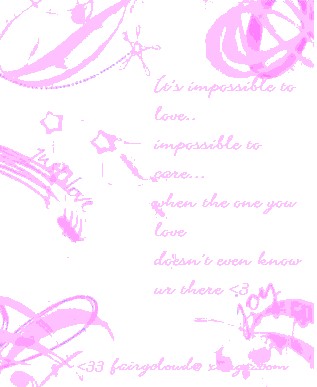 It's impossible to
love..
impossible to
care...
when the one you
love
doesn't even know
ur there <3
joy
love